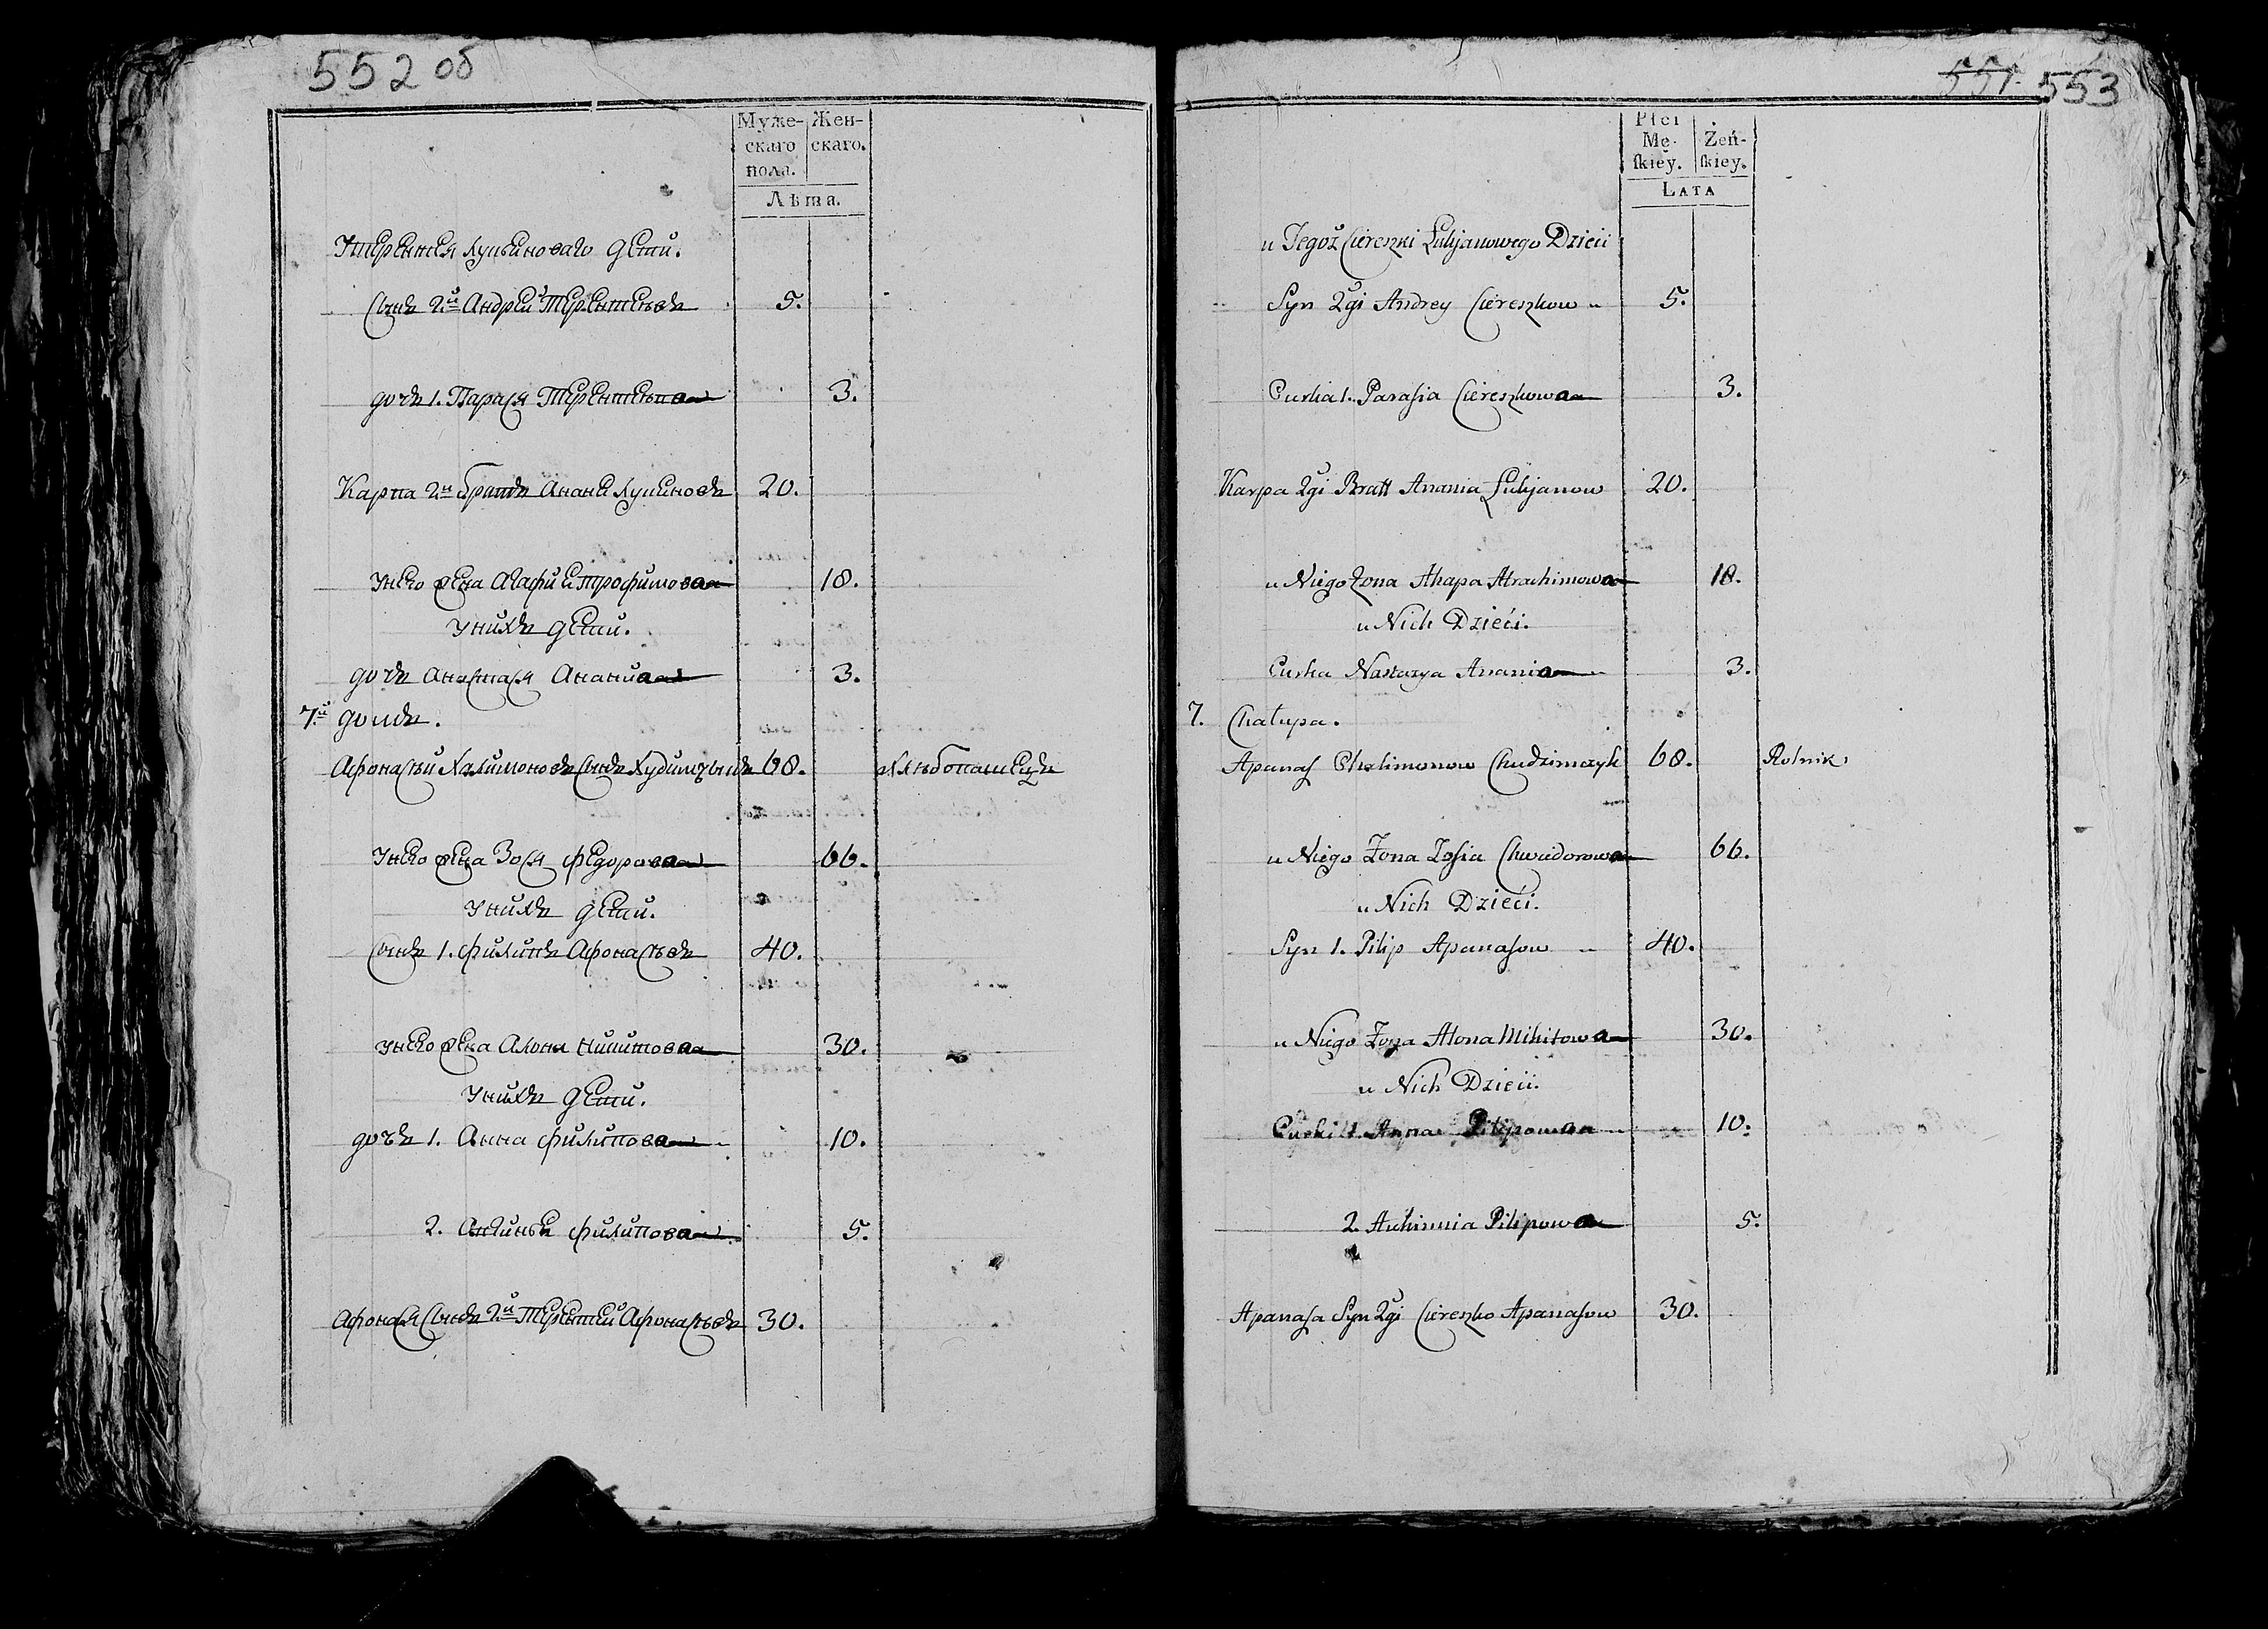 552 об
Муже- Жен-
скаго скаго.
пола.
Лѣта.
У Терентея Лукьиноваго дети.
Сынъ 2й Андрей Терентьевъ 5.
дочь 1. Парася Терентьева 3.
Карпа 2й братъ Анани Лукиновъ 20.
У него жена Агафия Трофимова 18.
У нихъ дети.
дочь Анастася Ананина 3.
7й домъ.
Афонасьи Халимоновъ сынъ Худимчыкъ 68. Хлѣбопашецъ
У него жена Зося Федорова 66.
У нихъ дети.
Сынъ 1. Филипъ Афонасьевъ 40.
У него жена Алона Никитова 30.
У нихъ дети.
дочь 1. Анна Филипова 10.
2. Филипова 5.
Афонася сынъ 2й Терентей Афонасьевъ 30.
551. 553
Płci
Mę- Żeń-
ſkiey. ſkiey.
LATA
u Tegoż Ciereszki Łukjanowego Dzieci
Syn 2gi Andrey Ciereszkow 5.
Curka 1. Paraſia Ciereszkowa 3.
Karpa 2gi Bratt Anania Łukjanow 20.
u Niego Żona Ahapa Atrachimowa 18.
u Nich Dzieci.
Curka Nastazya Anania 3.
7. Chałupa.
Apanaſ Chalimonow Chudzimczyk 68. Rolnik
u Niego Żona Zoſia Chwiedorowa 66.
u Nich Dzieci.
Syn 1. Pilip Apanaſow 40.
u Niego Żona Alona Mikitowa 30.
u Nich Dzieci.
Curki 1. Anna Pilipowa 10.
2. Auhinnia Pilipowa 5.
Apanaſa Syn 2gi Ciereszko Apanaſow 30.